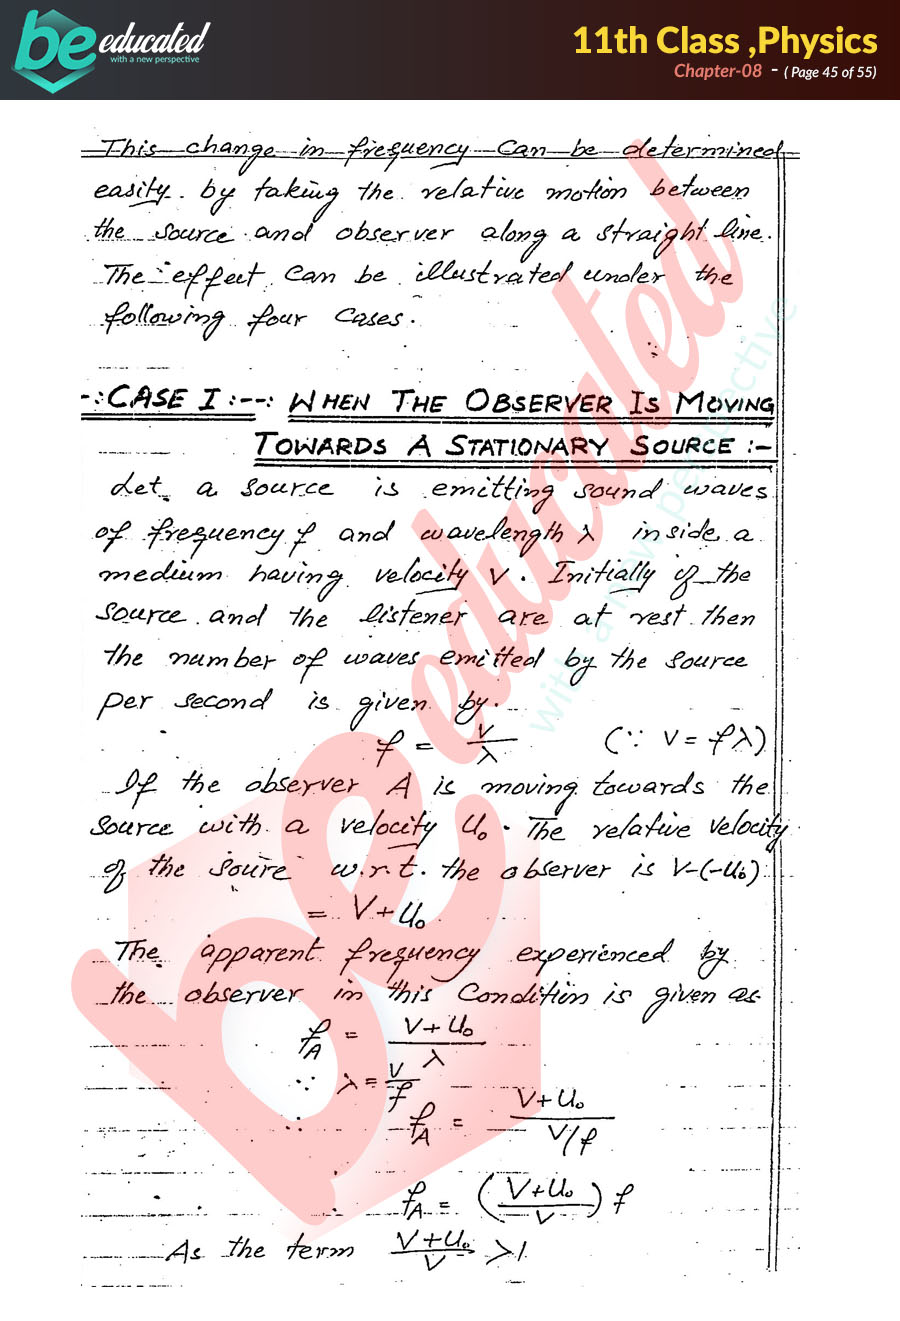 be educated
with a new perspective
11th Class ,Physics
Chapter-08 - ( Page 45 of 55)
This change in frequency can be determined
easily by taking the relative motion between
the source and observer along a straight line.
The effect can be illustrated under the
following four cases.
-:CASE I:--: WHEN THE OBSERVER IS MOVING
TOWARDS A STATIONARY SOURCE :-
Let a source is emitting sound waves
of frequency f and wavelength λ inside a
medium having velocity V. Initially if the
source and the listener are at rest then
the number of waves emitted by the source
per second is given by.
f = V/λ (∵ V = fλ)
If the observer A is moving towards the
source with a velocity U₀. The relative velocity
of the soure w.r.t. the observer is V-(-U₀)
= V+U₀
The apparent frequency experienced by
the observer in this Condition is given as
f_A = (V+U₀)/λ
∵ λ = V/f
∴ f_A = (V+U₀)/(V/f)
∴ f_A = ((V+U₀)/V) f
As the term (V+U₀)/V >1
be educated
with a new perspective